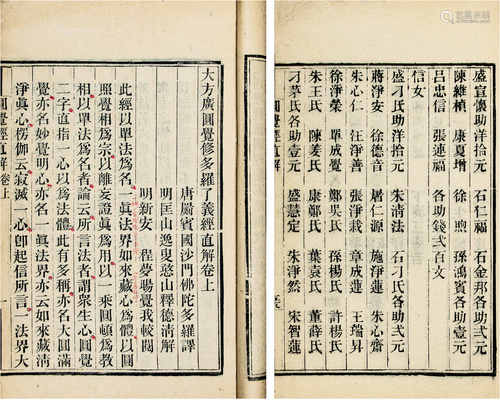 大方廣圓覺修多羅了義經直解卷上
唐罽賓國沙門佛陀多羅譯
明匡山逸叟憨山釋德清解
明新安 程夢暘覺我較閱
此經以單法爲名一眞法界如來藏心爲體以圓
照覺相爲宗以離妄證眞爲用以一乘圓頓爲教
相以單法爲名者論云所言法者謂衆生心圓覺
二字直指一心以爲法體此有多稱亦名大圓滿
覺亦名妙覺明心亦名一眞法界亦云如來藏清
淨眞心楞伽云寂滅一心卽起信所言一法界大
圓覺經直解卷上 一
盛宣懷助洋拾元 石仁福 石金邦各助弍元
陳維楨 康夏增 徐煦 孫鴻賓各助壹元
呂忠信 張連福 各助錢弍百文
信女
盛刁氏助洋拾元 朱清法 石刁氏各助弍元
蔣淨安 徐德音 屠仁源 施淨蓮 朱心齋
朱心仁 汪淨善 張淨栽 章成蓮 王瑞昇
徐淨榮 單成覺 鄭吳氏 孫楊氏 許楊氏
朱王氏 陳姜氏 康鄭氏 葉袁氏 董薛氏
刁茅氏各助壹元 盛慧定 朱淨然 宋智蓮
圓覺經直解